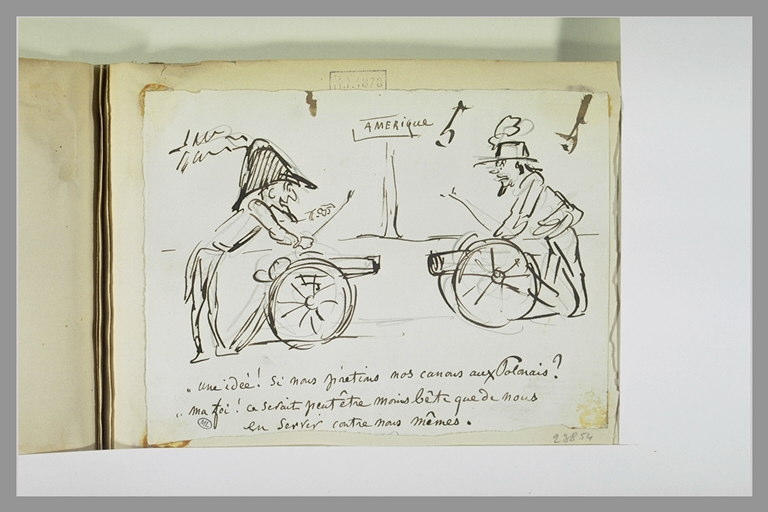 AMERIQUE
„ une idée! Si nous prêtions nos canons aux Polonais?
„ ma foi! ce serait peut être moins bête que de nous
en servir contre nous mêmes.
23854